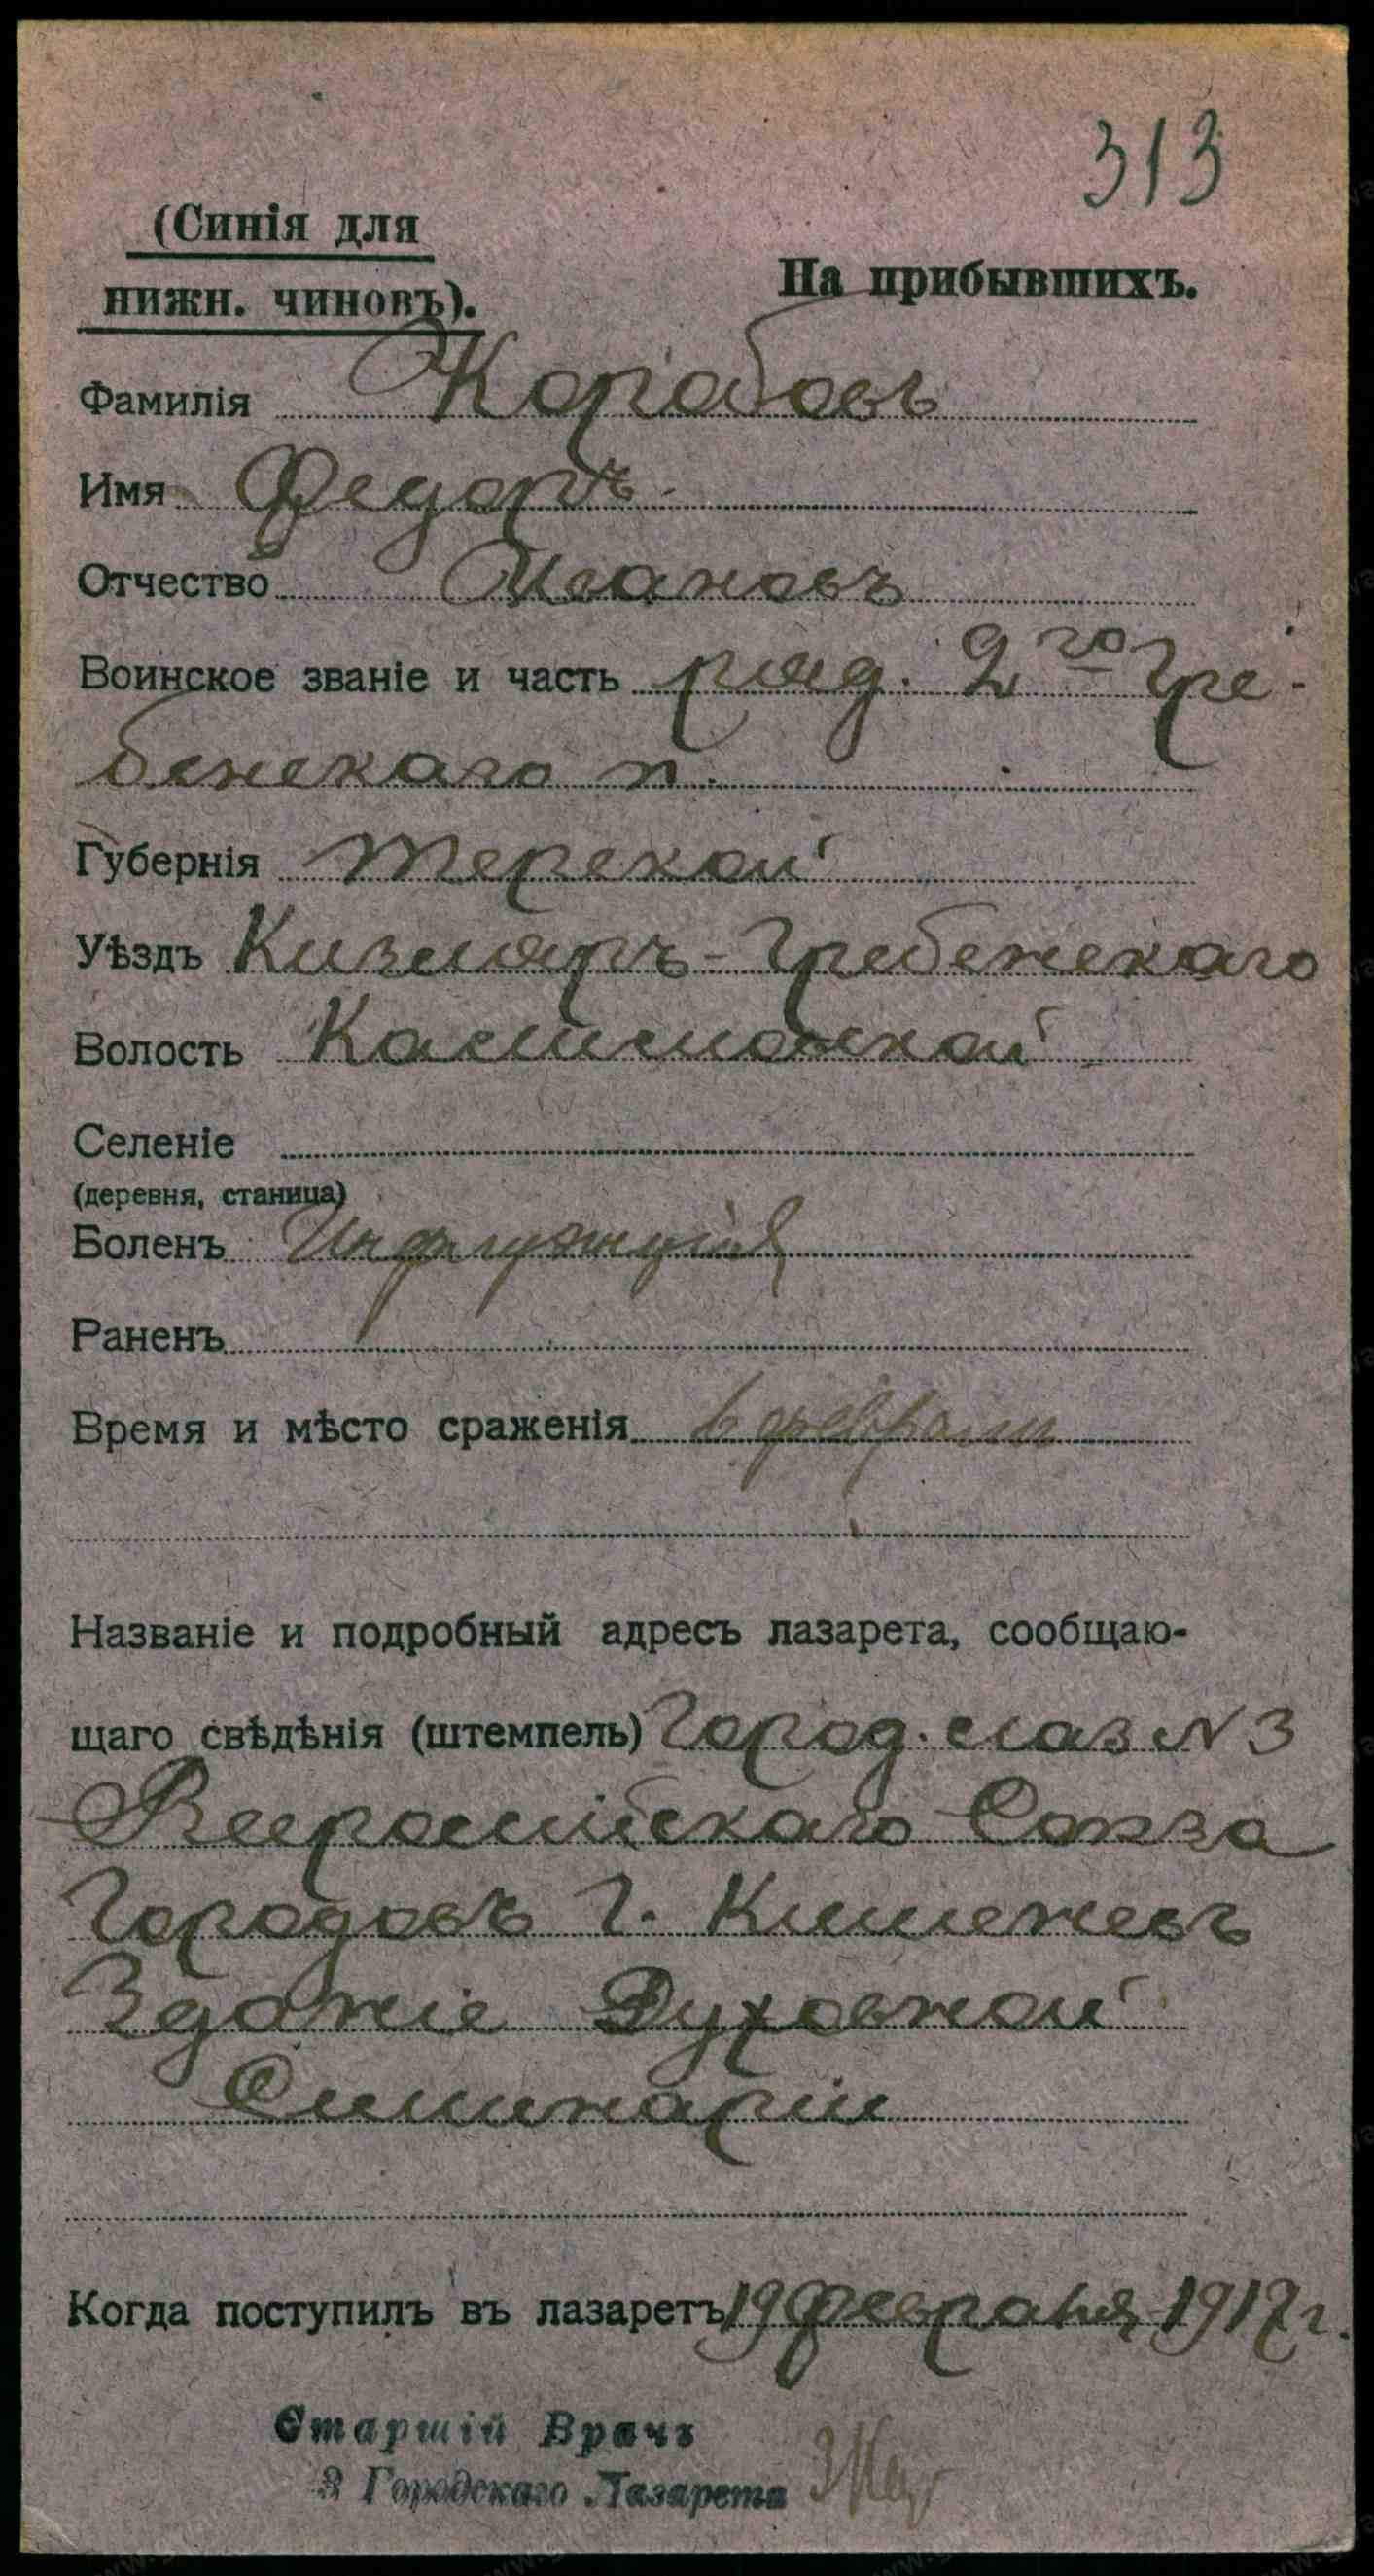 313
(Синія для
нижн. чиновъ).
На прибывшихъ.
Фамилія Корабовъ
Имя Федоръ
Отчество Ивановъ
Воинское званіе и часть ряд. 2го Гре-
бенскаго п.
Губернія Терской
Уѣздъ Кизляръ-Гребенскаго
Волость
Селеніе
(деревня, станица)
Боленъ Инфлуэнція
Раненъ
Время и мѣсто сраженія въ февралѣ
Названіе и подробный адресъ лазарета, сообщаю-
щаго свѣдѣнія (штемпель) Город. лаз N 3
Всеросийскаго Союза
Городовъ г. Кишеневъ
Зданіе Духовной
Симинаріи
Когда поступилъ въ лазаретъ 19 февраля 1917 г.
Старшій Врачъ
3 Городскаго Лазарета